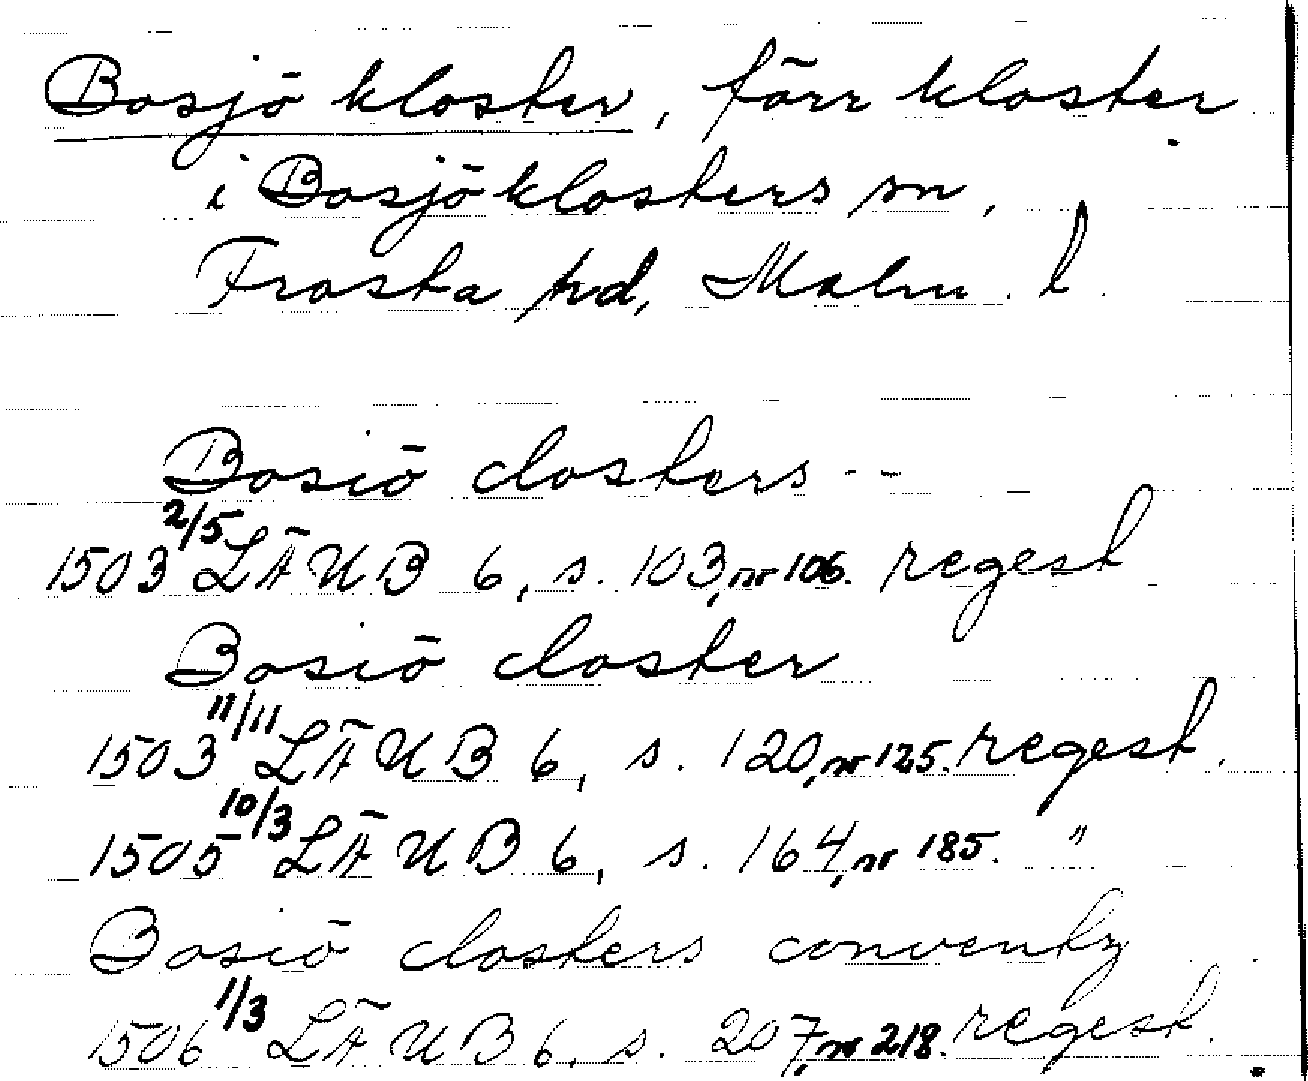 Bosjö kloster, förr kloster
i Bosjöklosters sn,
Frosta hd, Malm. l.
Bosiö closters --
1503 2/5 LÄUB 6, s. 103, nr 106. regest
Bosiö closter
1503 11/11 LÄUB 6, s. 120, nr 125. regest.
1505 10/3 LÄUB 6, s. 164, nr 185. "
Bosiö closters conventz
1506 1/3 LÄUB 6, s. 207, nr 218. regest.